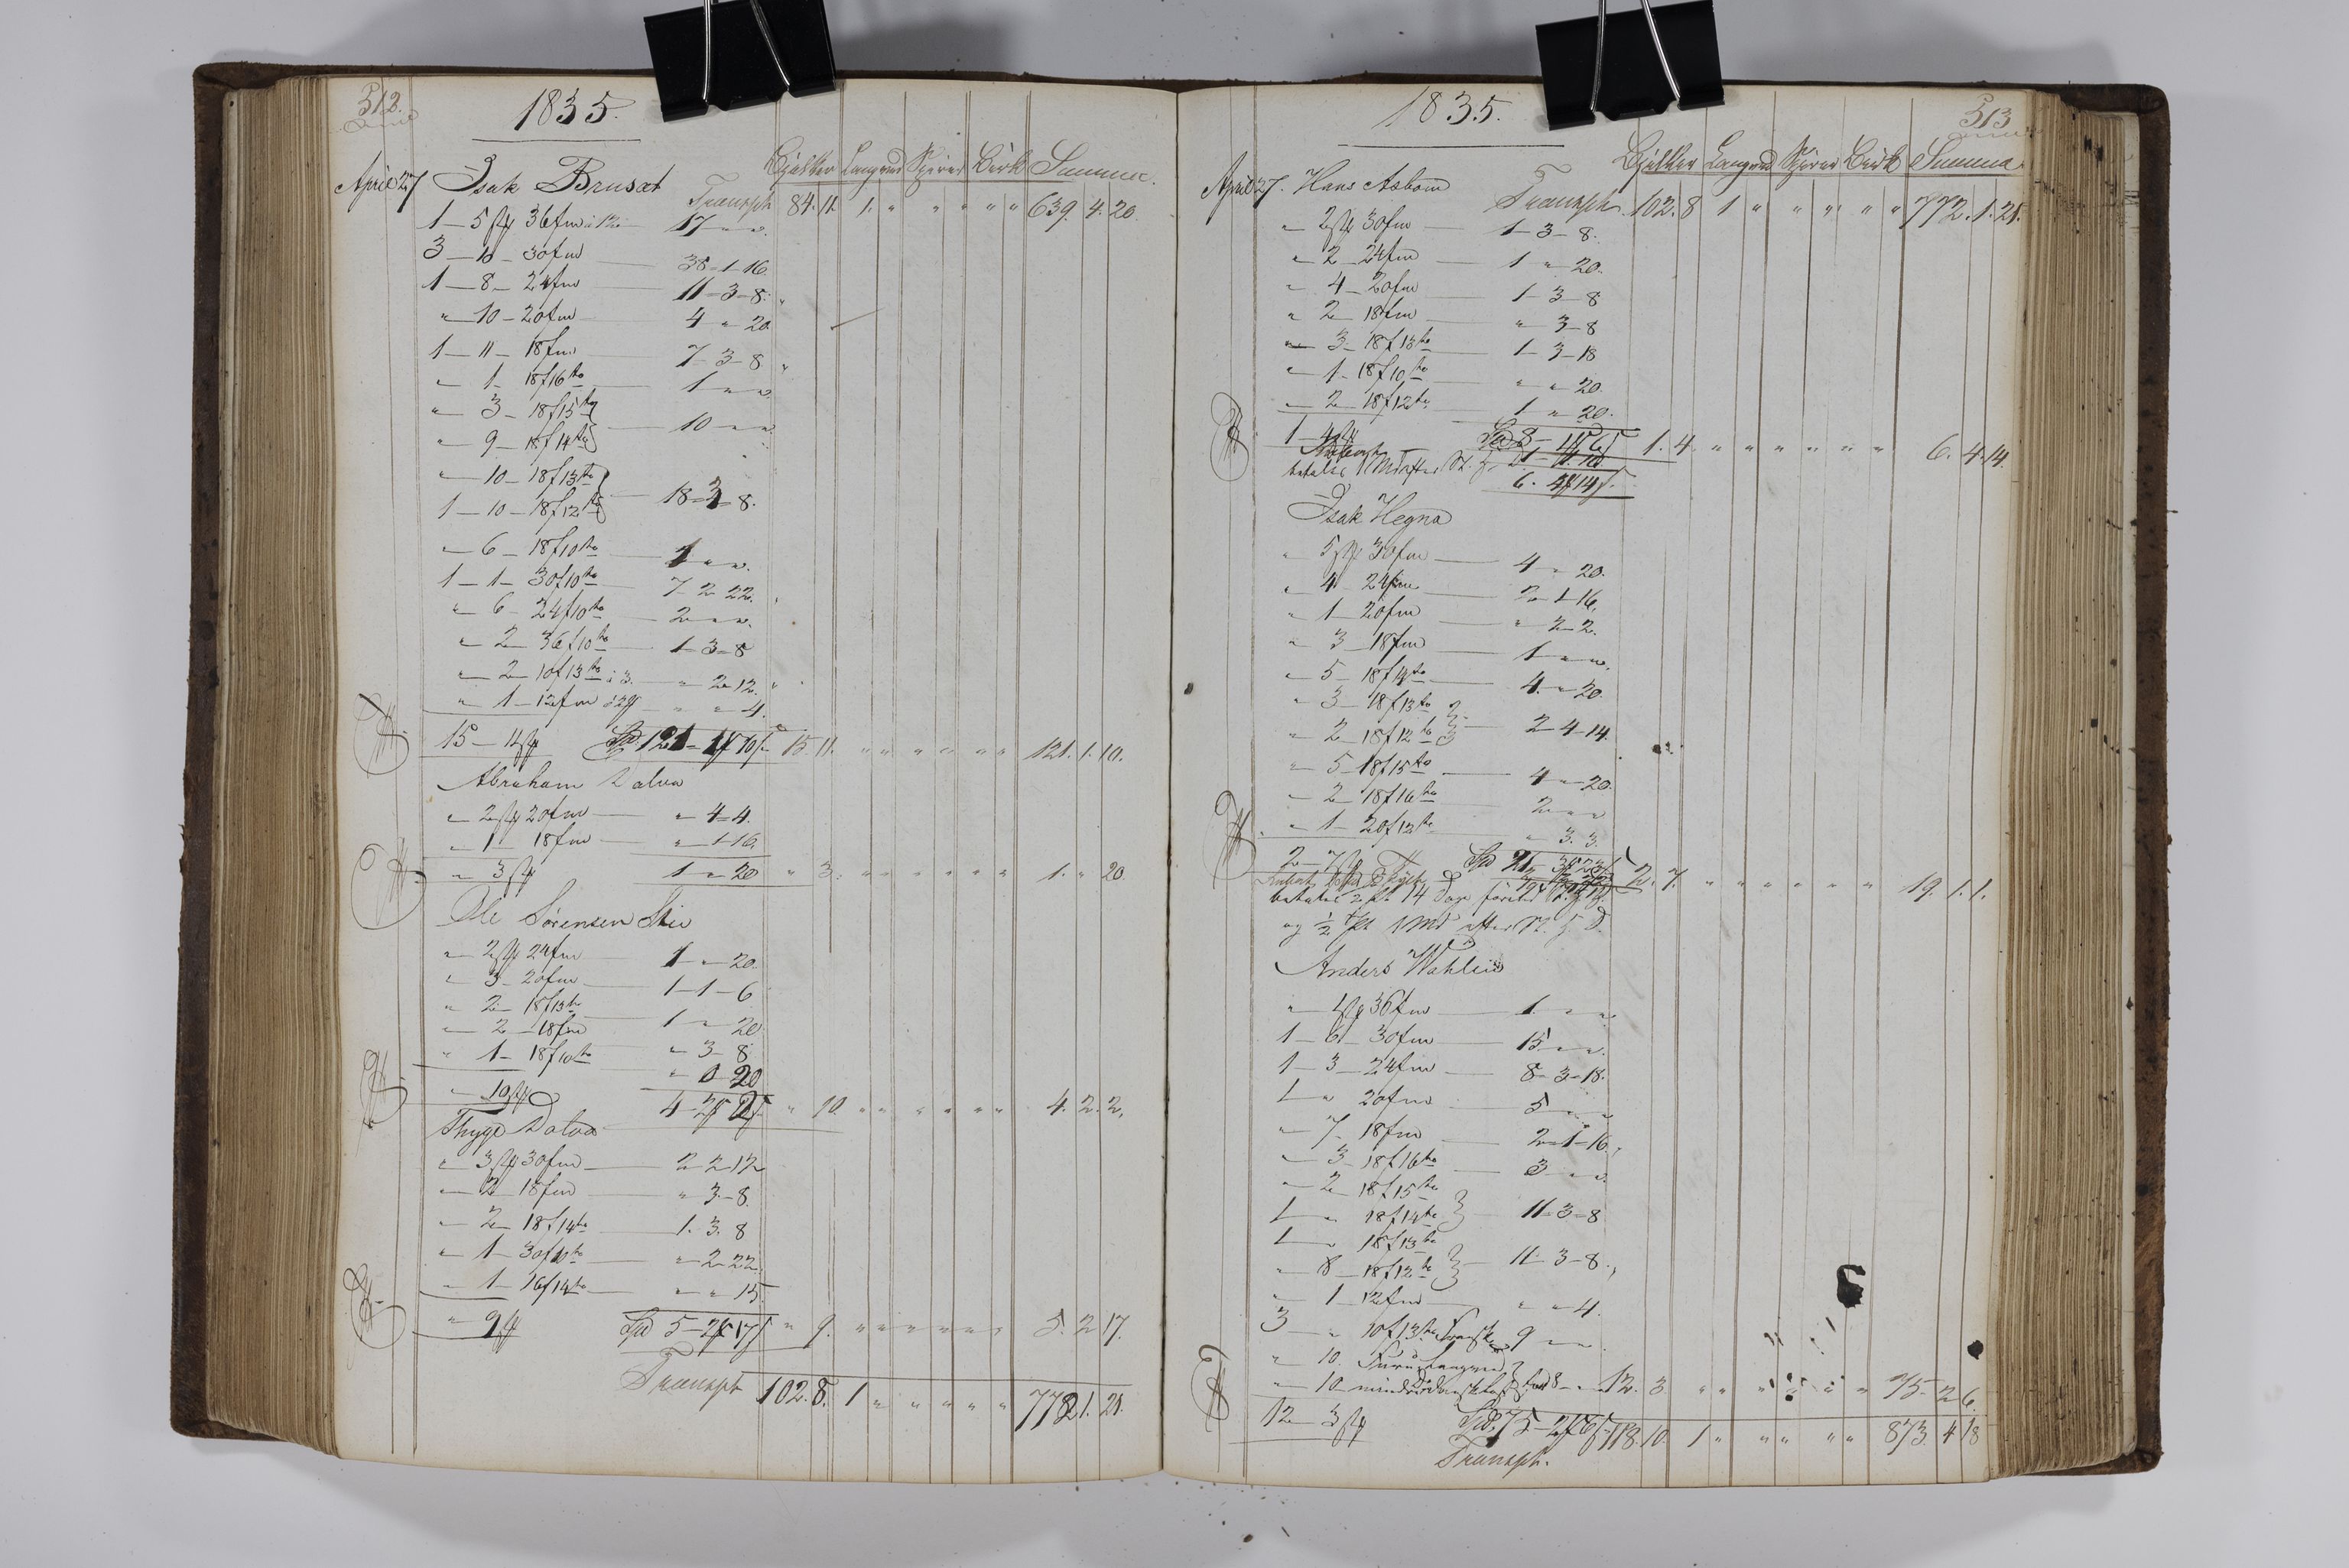 312.
1835.
Bjælker Langved Spirer Birk Summa.
April 27 Isak Brusæt Transpt 84. 11. 1. " " " " " 639. 4. 20.
1 — 5 st 36 fm à 12 — 17 " "
3 — 10 — 30 fm — 38 — 1 — 16.
1 — 8 — 24 fm — 11 — 3 — 8.
" — 10 — 20 fm — 4 " 20
1 — 11 — 18 fm — 7 — 3 — 8
" — 1 — 18 f 16 to — 1 " "
" — 3 — 18 f 15 to
" — 9 — 18 f 14 to — 10 " "
" — 10 — 18 f 13 to
1 — 10 — 18 f 12 to — 18 — 3 — 8.
" — 6 — 18 f 10 to — 1 " "
1 — 1 — 30 f 10 to — 7 — 2 22.
" 6 — 24 f 10 to — 2 " "
" — 2 — 36 f 10 to — 1 — 3 — 8
" — 2 — 10 f 13 to à 3. — " 2 — 12.
" 1 — 12 fm — " " 4.
15 — 11 st Spd 121 — 1 10 15. 11. " " " " " " 121. 1. 10.
Abraham Dalva
" 2 st 20 fm — " 4 — 4.
" 1 — 18 fm — " 1 — 16.
" 3 st 1 " 20 " 3. " " " " " " 1. " 20.
Ole Sørensen Lie
" 2 st 24 fm 1 — " 20.
" 3 — 20 fm — 1 — 1 — 6
" 2 — 18 f 13 to — 1 " 20
" 2 — 18 fm " 3 — 8
" 1 — 18 f 10 to " 0 20
" 10 st 4 — 2 2 " 10. " " " " " " 4. 2. 2.
Thyge Dalva
" 3 st 30 fm — 2 2 12
" 2 — 18 fm " 3 — 8
" 2 — 18 f 14 to — 1. 3. 8
" 1 — 30 f 10 to — " 2 22.
" 1 — 16 f 14 to — " " 15.
" 9 st Spd 5 — 2 17 " 9. " " " " " " 5. 2 17.
Transpt 102. 8. 1 " " " " " 772. 1. 21.
513
1835.
Bjælker Langved Spirer Birk Summa
April 27. Hans Aabom Transpt. 102. 8 1 " " " " " 772. 1. 21.
" 2 st 30 fm — 1 — 3 — 8.
" 2 — 24 fm — 1 " 20.
" 4 — 20 fm — 1 — 3 — 8
" 2 — 18 fm — " 3 — 8
" 3 — 18 f 13 to — 1 — 3 — 18
" 1 — 18 f 10 to — " " 20
" 2 — 18 f 12 to — 1 " 20.
1 — 4 st Spd 8 — 1. 4. " " " " " " 6. 4. 14.
6. 4 14
Isak Hegna
" 5 st 30 fm — 4 " 20.
" 4 — 24 fm — 2 — 1 — 16.
" 1 — 20 fm — " 2 — 2.
" 3 — 18 fm — 1 " "
" 5 — 18 f 14 to — 4. " 20.
" 3 — 18 f 13 to
" 2 — 18 f 12 to — 2 — 4 — 14.
" 5 — 18 f 15 to — 4 " 20.
" 2 — 18 f 16 to 2 " "
" 1 — 20 f 12 to " 3. 3.
2 — 7 st Spd 21 — 3 2. 7. " " " " " " 19. 1. 1.
betales 14 Dage
og ½ 1 Md efter
Anders Wahlen
" 1 st 36 fm — 1. " "
1 — 6 — 30 fm — 15 " "
1 — 3 — 24 fm — 8 — 3 — 18.
1 " 20 fm 5 " "
" 7 — 18 fm — 2 — 1 — 16.
" 3 — 18 f 16 to — 3 " "
" 2 — 18 f 15 to
1 " 18 f 14 to — 11 — 3 — 8
1 " 18 f 13 to
" 8 — 18 f 12 to — 11 — 3 — 8.
" 1 — 12 fm — " " 4.
3 " 10 f 13 to 9 " "
" 10. Furu Langved
" 10 mindre 8 " " 12. 3 " " " " " " 75 — 2 6.
12 — 3 st Spd. 75 — 2 6 118. 10. 1 " " " " " 873. 4 18
Transpt.